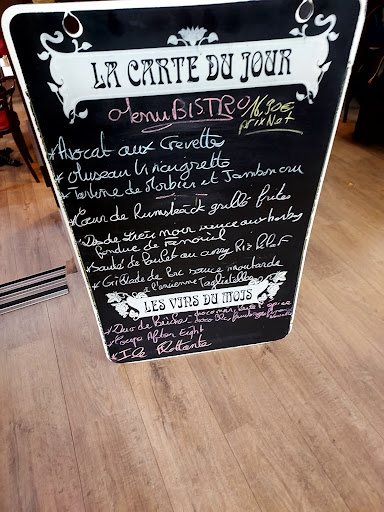 LA CARTE DU JOUR
Menu BISTRO 16,90€
prix Net
* Avocat aux Crevettes
* Museau Vinaigrette
* Tartine de Morbier et Jambon cru
* Coeur de Rumsteack grillé frites
* Dos de lieu noir sauce aux herbes
fondue de
* Sauté de Poulet au curry Riz Pilaf
* Gibelade de Porc sauce moutarde
à l'ancienne Tagliatelles
LES VINS DU MOIS
* Duo de
* Coupe After Eight
* Ile Flottante